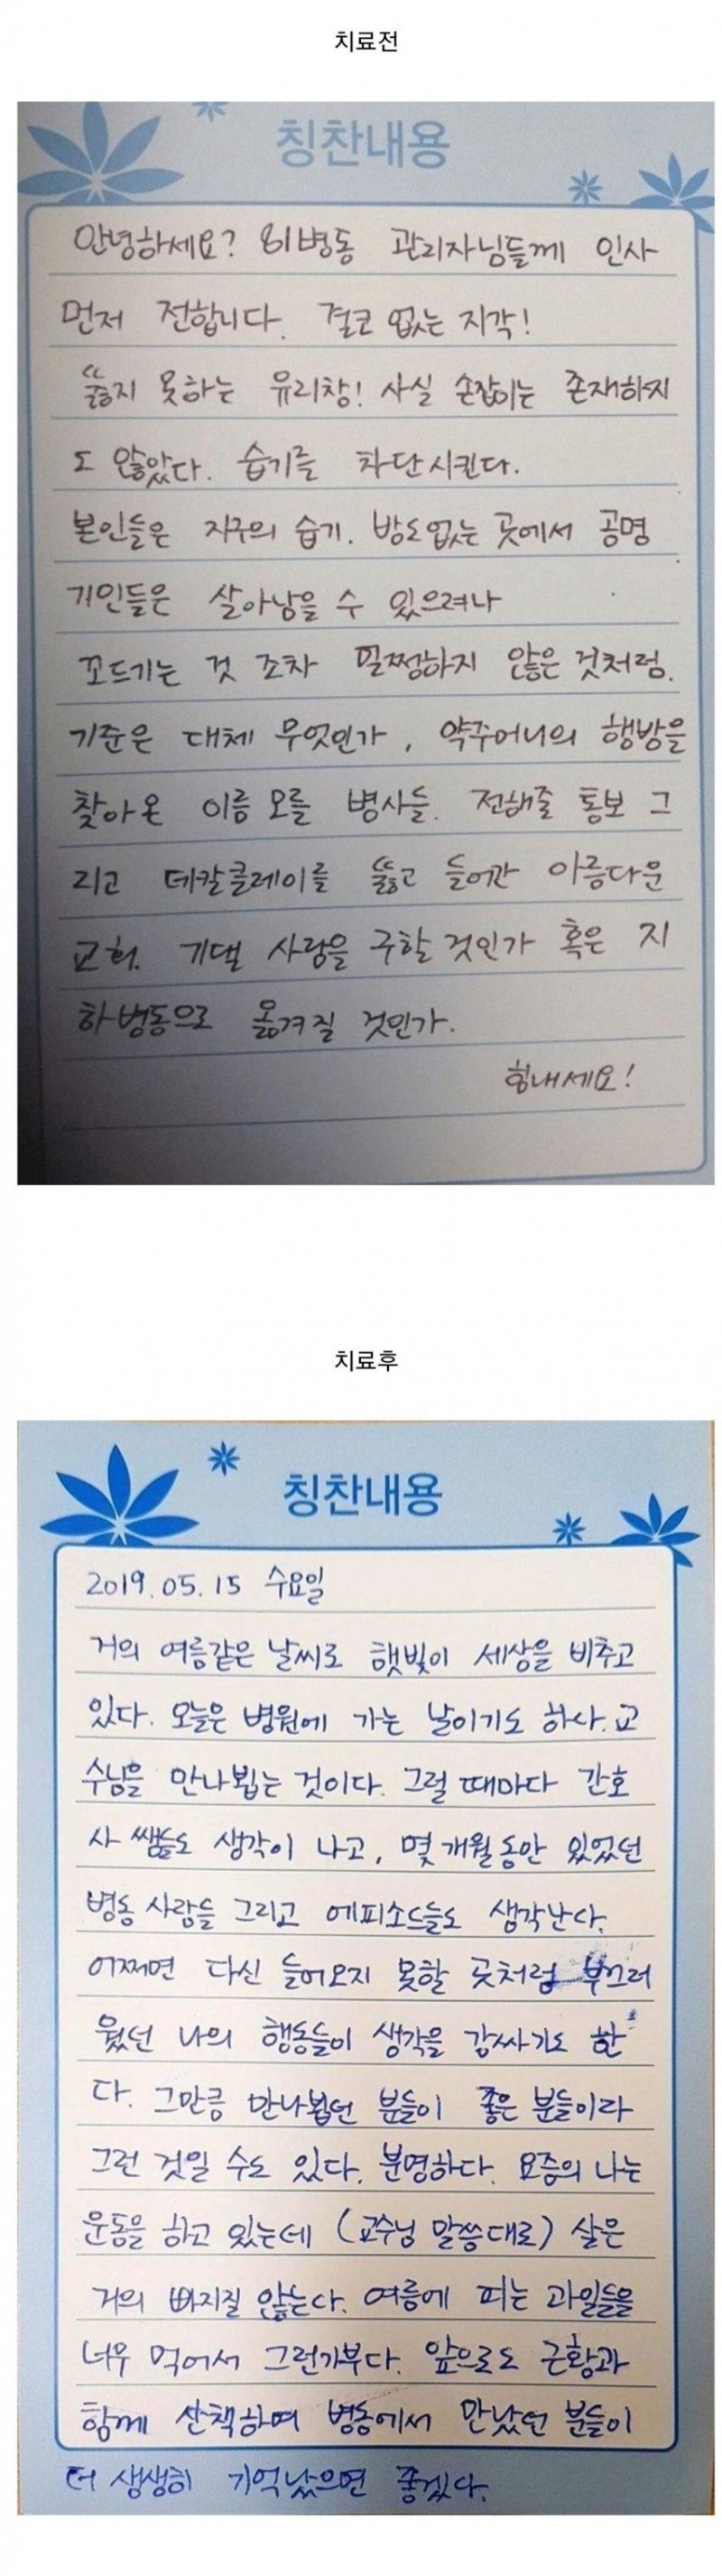 치료전
칭찬내용
안녕하세요? 81병동 관리자님들께 인사
먼저 전합니다. 결코 없는 지각!
뚫지 못하는 유리창! 사실 손잡이는 존재하지
도 않았다. 습기를 차단시킨다.
본인들은 지구의 습기. 방도없는 곳에서 공명
기인들은 살아남을 수 있으려나
꼬드기는 것 조차 멀쩡하지 않은 것처럼.
기준은 대체 무엇인가, 약주머니의 행방을
찾아온 이름 모를 병사들. 전해줄 통보 그
리고 데칼클레이를 뚫고 들어간 아름다운
교회. 기댈 사람을 구할 것인가 혹은 지
하병동으로 옮겨질 것인가.
힘내세요!
치료후
칭찬내용
2019.05.15 수요일
거의 여름같은 날씨로 햇빛이 세상을 비추고
있다. 오늘은 병원에 가는 날이기도 하사. 교
수님을 만나뵙는 것이다. 그럴 때마다 간호
사 쌤들도 생각이 나고, 몇 개월동안 있었던
병동 사람들 그리고 에피소드들도 생각난다.
어쩌면 다신 들어오지 못할 곳처럼 부끄러
웠던 나의 행동들이 생각을 감싸기도 한
다. 그만큼 만나뵙던 분들이 좋은 분들이라
그런 것일 수도 있다. 분명하다. 요즘의 나는
운동을 하고 있는데 (교수님 말씀대로) 살은
거의 빠지질 않는다. 여름에 피는 과일들을
너무 먹어서 그런가부다. 앞으로도 근황과
함께 산책하며 병동에서 만났던 분들이
더 생생히 기억났으면 좋겠다.